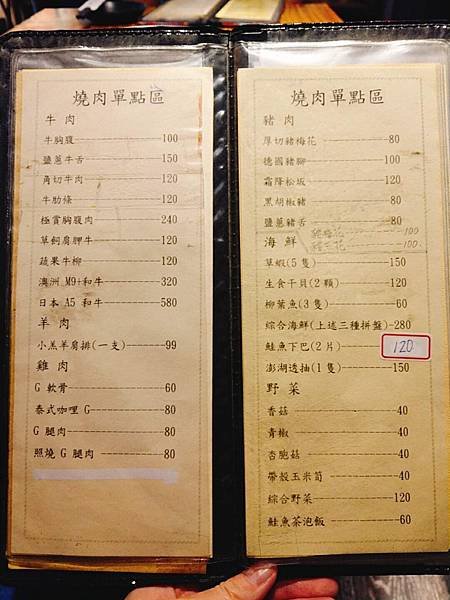 燒肉單點區
牛肉
牛胸腹------100
鹽蔥牛舌------150
角切牛肉------120
牛肋條------120
極賞胸腹肉------240
草飼肩胛牛------120
蔬果牛柳------120
澳洲 M9+和牛------320
日本 A5 和牛------580
羊肉
小羔羊肩排(一支)------99
雞肉
G 軟骨------60
泰式咖哩 G------80
G 腿肉------80
照燒 G 腿肉------80
燒肉單點區
豬肉
厚切豬梅花------80
德國豬腳------100
霜降松坂------120
黑胡椒豬------80
鹽蔥豬舌------80
100
海鮮
100
草蝦(5 隻)------150
生食干貝(2 顆)------120
柳葉魚(3 隻)------60
綜合海鮮(上述三種拼盤)-280
鮭魚下巴(2 片) 120
澎湖透抽(1 隻)------150
野菜
香菇------40
青椒------40
杏鮑菇------40
帶殼玉米筍------40
綜合野菜------120
鮭魚茶泡飯------60